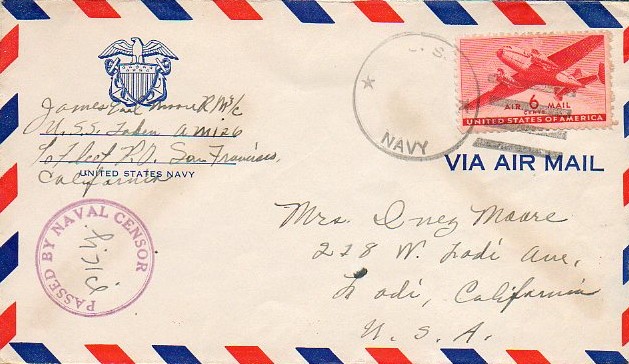 James Earl Moore RM3/c
U.S.S. Token AM126
c/o Fleet P.O. San Francisco,
California
UNITED STATES NAVY
PASSED BY NAVAL CENSOR
U.S.
NAVY
AIR 6 MAIL
CENTS
UNITED STATES OF AMERICA
VIA AIR MAIL
Mrs. Inez Moore
228 W. Lodi Ave,
Lodi, California
U. S. A.